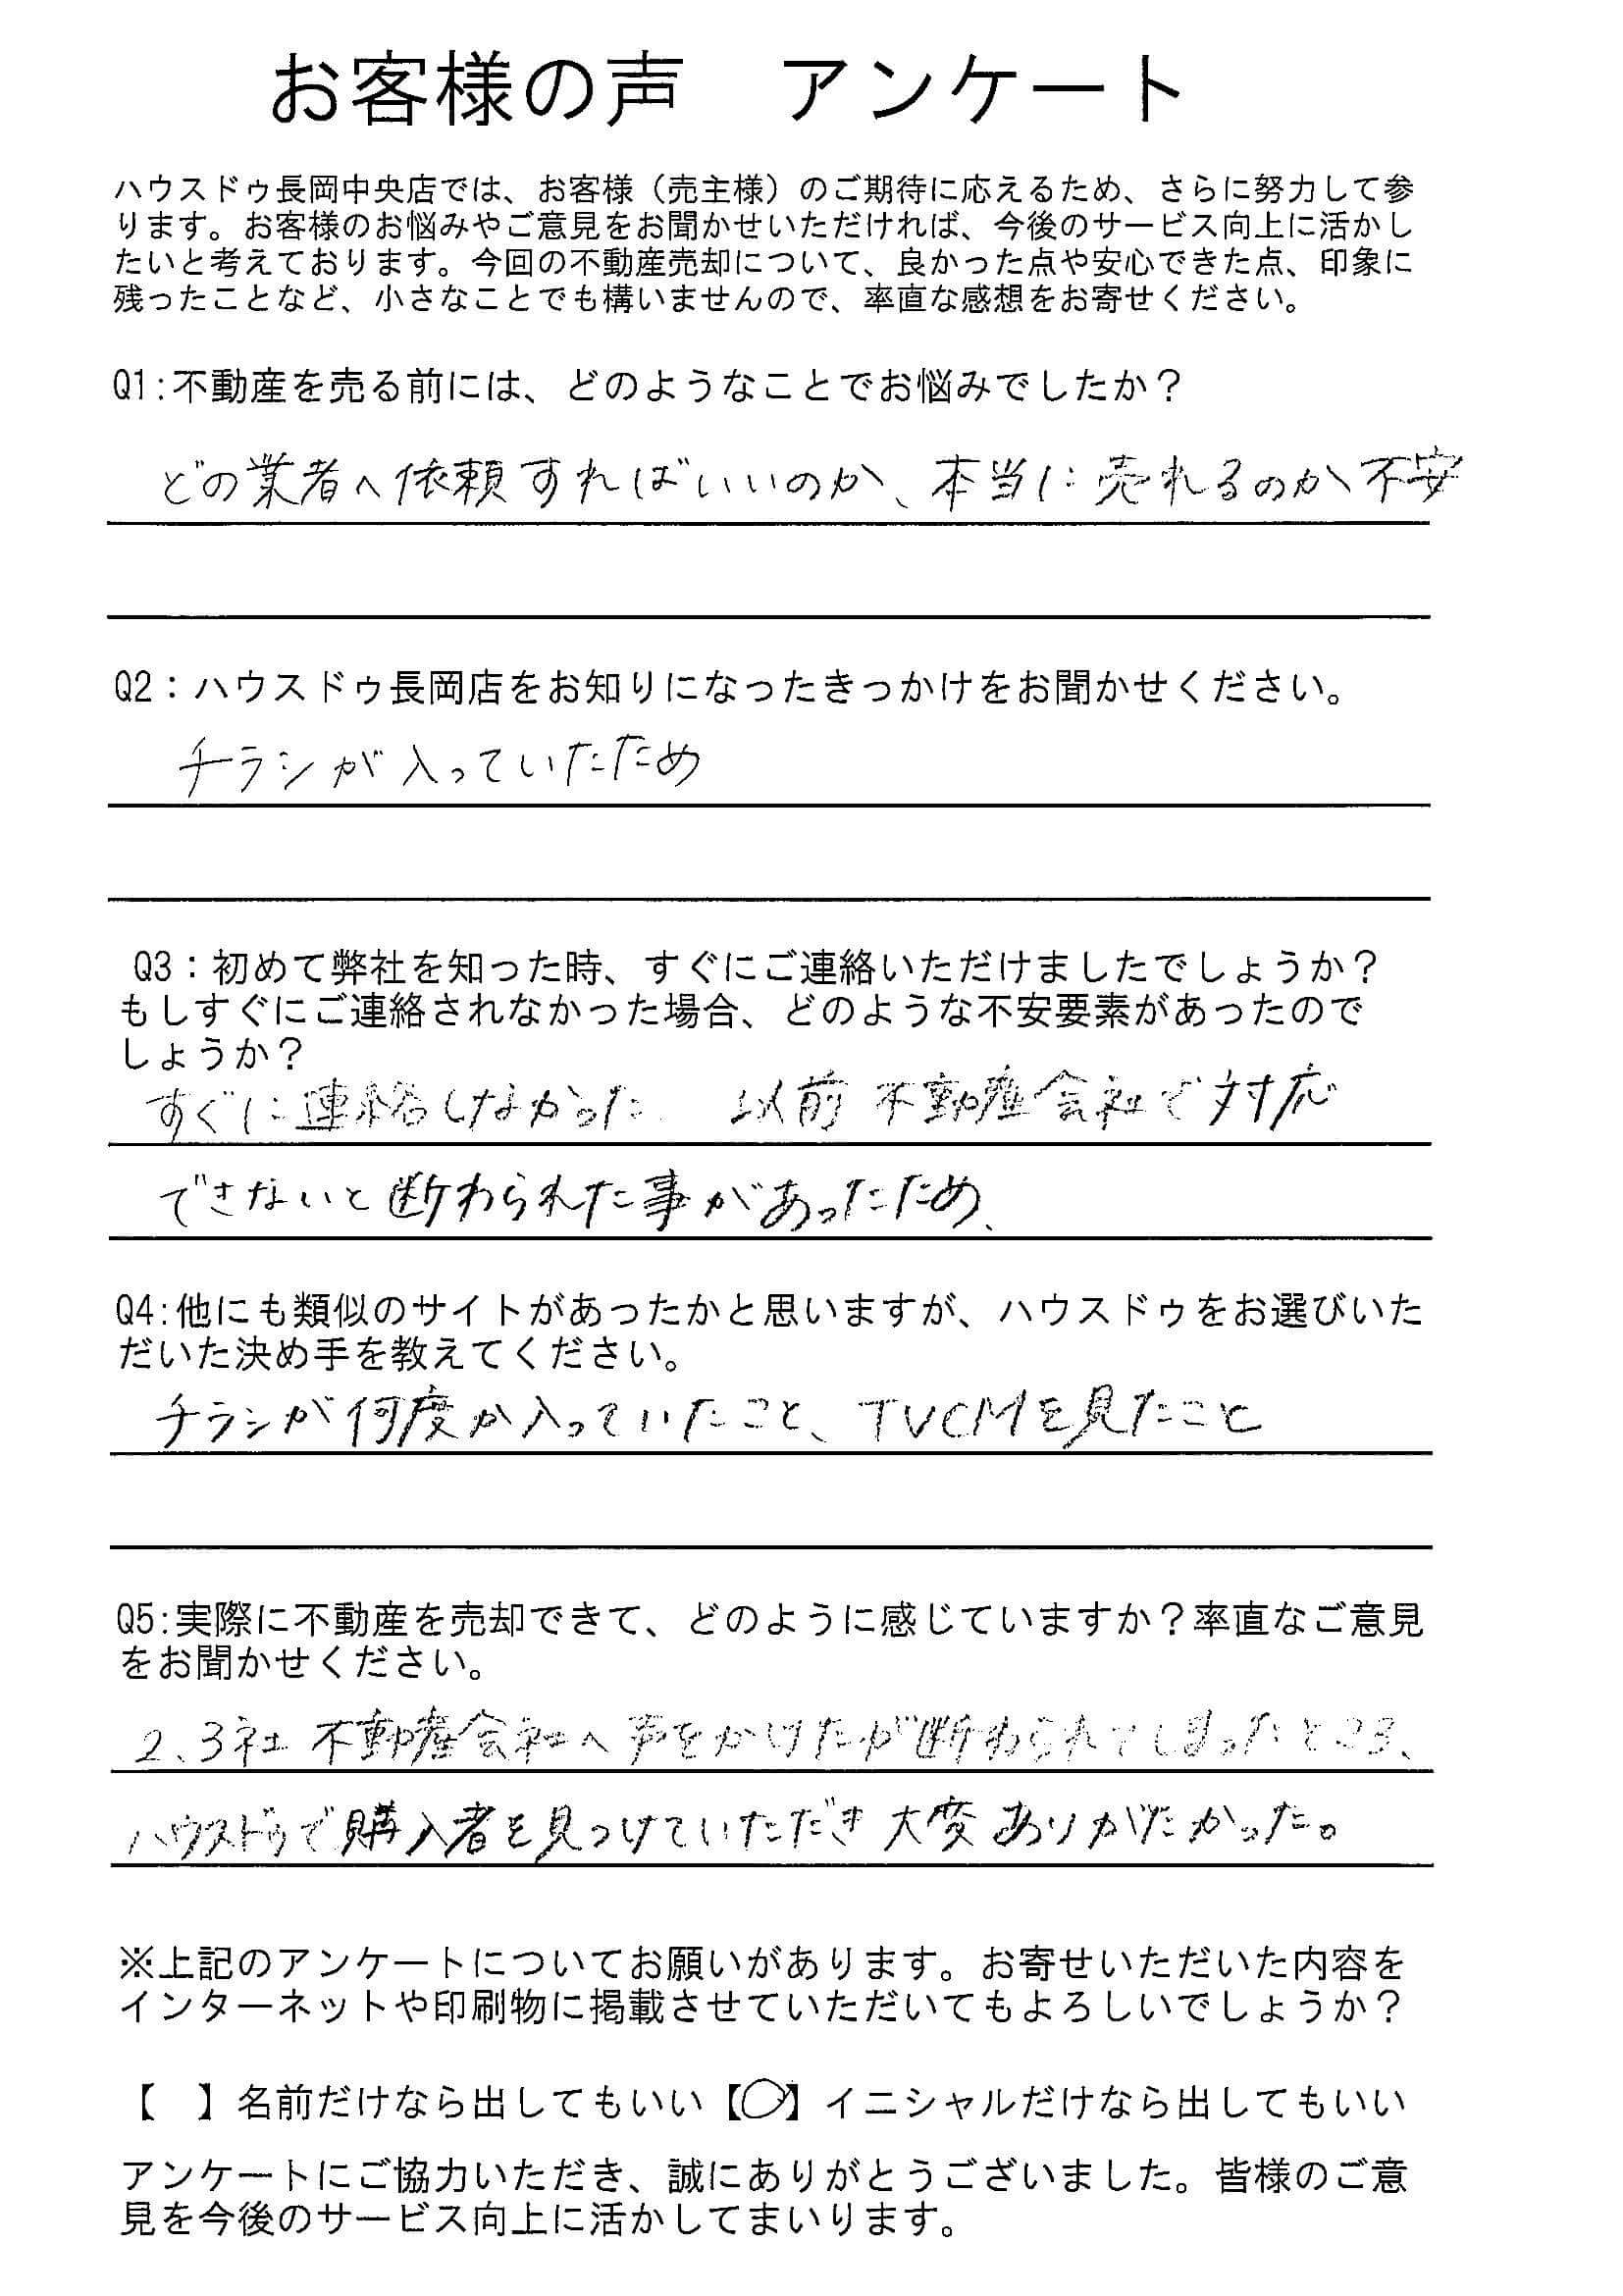 お客様の声　アンケート
ハウスドゥ長岡中央店では、お客様（売主様）のご期待に応えるため、さらに努力して参
ります。お客様のお悩みやご意見をお聞かせいただければ、今後のサービス向上に活かし
たいと考えております。今回の不動産売却について、良かった点や安心できた点、印象に
残ったことなど、小さなことでも構いませんので、率直な感想をお寄せください。
Q1:不動産を売る前には、どのようなことでお悩みでしたか？
どの業者へ依頼すればいいのか、本当に売れるのか不安
Q2：ハウスドゥ長岡店をお知りになったきっかけをお聞かせください。
チラシが入っていたため
Q3：初めて弊社を知った時、すぐにご連絡いただけましたでしょうか？
もしすぐにご連絡されなかった場合、どのような不安要素があったので
しょうか？
すぐに連絡しなかった。以前不動産会社で対応
できないと断わられた事があったため、
Q4:他にも類似のサイトがあったかと思いますが、ハウスドゥをお選びいた
だいた決め手を教えてください。
チラシが何度か入っていたこと、TVCMを見たこと
Q5:実際に不動産を売却できて、どのように感じていますか？率直なご意見
をお聞かせください。
2、3社不動産会社へ声をかけたが断わられてしまったところ、
ハウスドゥで購入者を見つけていただき大変ありがたかった。
※上記のアンケートについてお願いがあります。お寄せいただいた内容を
インターネットや印刷物に掲載させていただいてもよろしいでしょうか？
【　】名前だけなら出してもいい【○】イニシャルだけなら出してもいい
アンケートにご協力いただき、誠にありがとうございました。皆様のご意
見を今後のサービス向上に活かしてまいります。